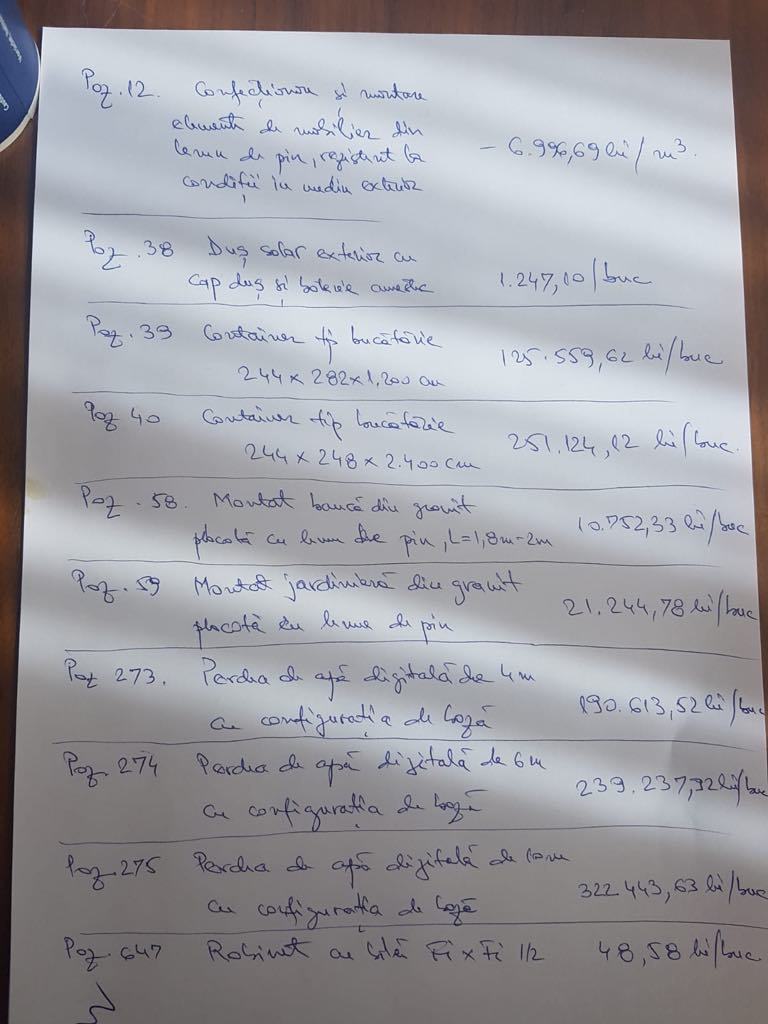 Poz.12. Confecționare și montare
elemente de mobilier din
lemn de pin, rezistent la
condiții in mediu exterior
– 6.996,69 lei/m³.
Poz.38 Duș solar exterior cu
cap duș și baterie amestec
1.247,10/buc
Poz.39 Container tip bucătărie
244 x 282 x 1,200 cm
125.559,62 lei/buc
Poz 40 Container tip bucătărie
244 x 248 x 2.400 cm
251.124,12 lei/buc.
Poz.58. Montat bancă din granit
placată cu lemn de pin, L=1,8m-2m
10.752,33 lei/buc
Poz.59 Montat jardinieră din granit
placată cu lemn de pin
21.244,78 lei/buc
Poz 273. Perdea de apă digitală de 4m
cu configurația de bază
190.613,52 lei/buc
Poz.274 Perdea de apă digitală de 6m
cu configurația de bază
239.237,92 lei/buc
Poz.275 Perdea de apă digitală de 10m
cu configurația de bază
322.443,63 lei/buc
Poz.647 Robinet cu bilă Fi x Fi 1/2 48,58 lei/buc